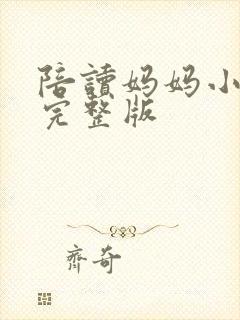 陪讀妈妈小
完整版
齊奇